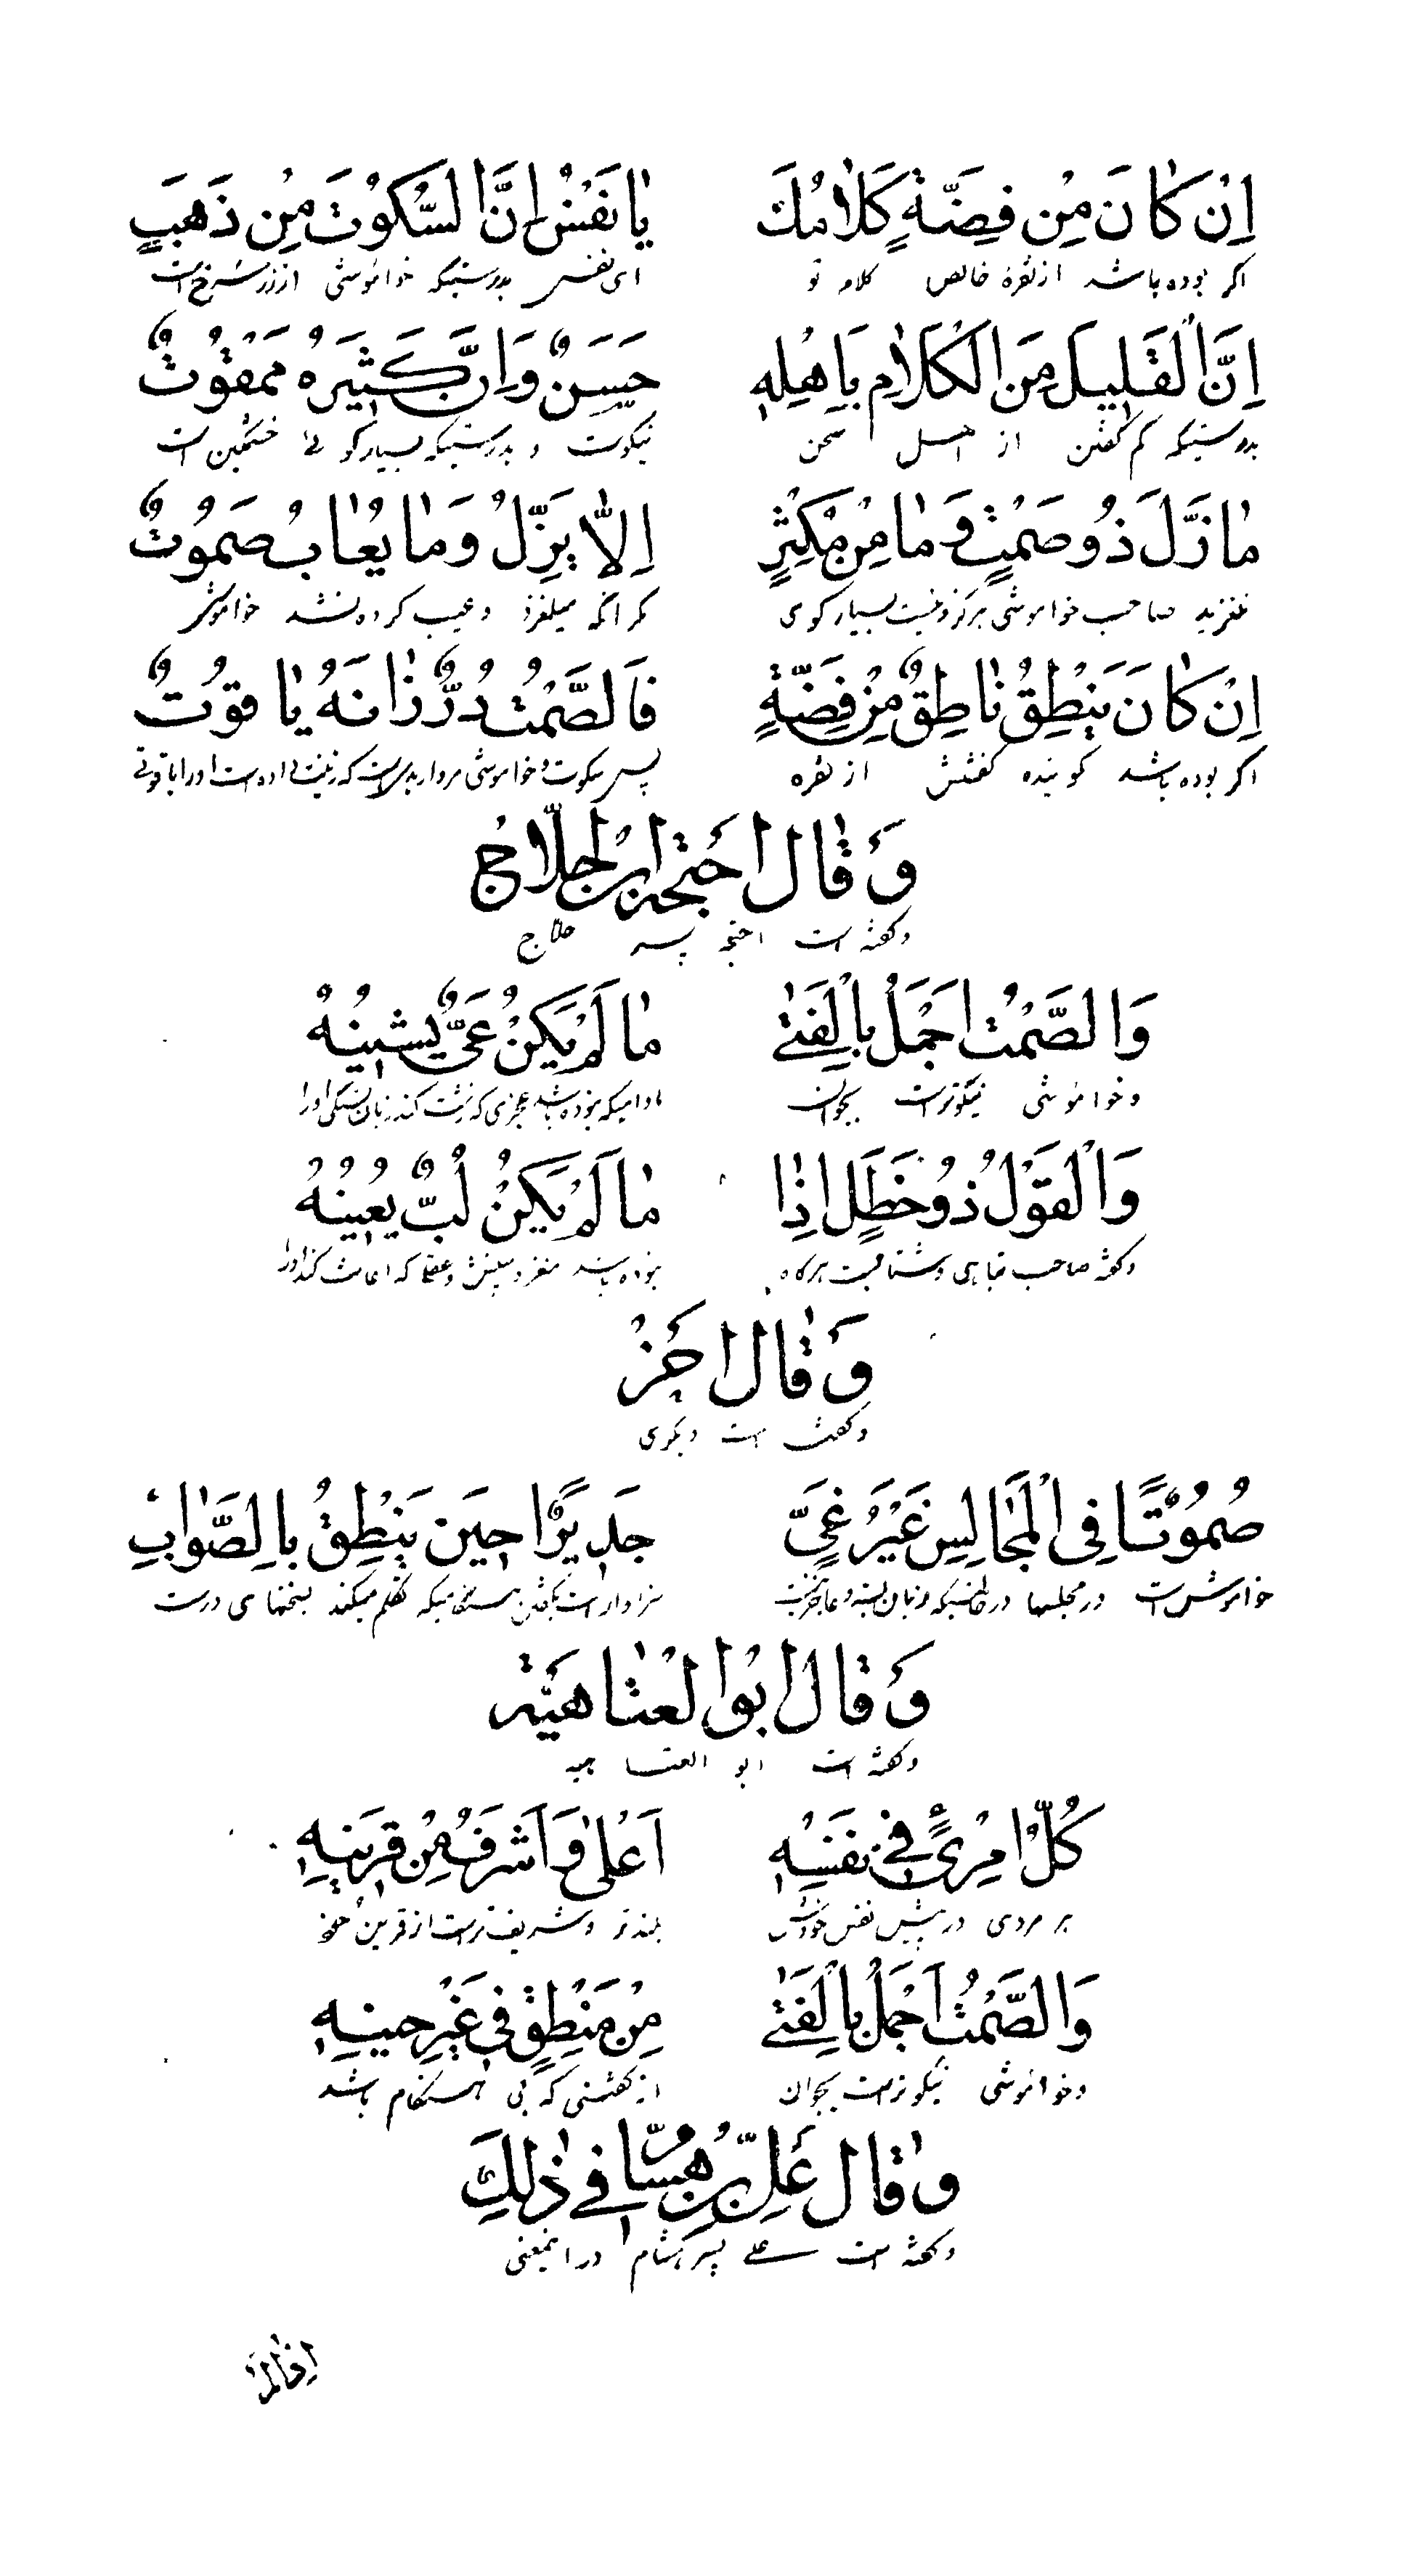 اِنْ كٰانَ مِنْ فِضَّةٍ كَلٰامُكَ يٰا نَفْسُ اِنَّ السُّكُوْتَ مِنْ ذَهَبٍ
اگر بوده باشد از نقرهٔ خالص کلام تو ای نفس بدرستیکه خواموشی از زر سرخ است
اِنَّ الْقَلِيلَ مِنَ الْكَلٰامِ بِاَهْلِهِ حَسَنٌ وَاِنَّ كَثِيرَهُ مَمْقُوْتٌ
بدرستیکه کم گفتن از اهل سخن نیکوست و بدرستیکه بسیار گوئی خشمگین است
مٰا زَلَّ ذُو صَمْتٍ وَمٰا مِنْ مُكْثِرٍ اِلّٰا يَزِلُّ وَمٰا يُعٰابُ صَمُوتٌ
نلغزید صاحب خواموشی هرگز و نیست بسیار گوی مگر آنکه میلغزد و عیب کرده نشد خواموش
اِنْ كٰانَ يَنْطِقُ نٰاطِقٌ مِنْ فِضَّةٍ فَالصَّمْتُ دُرٌّ زٰانَهُ يٰاقُوْتٌ
اگر بوده باشد گوینده گفتنش از نقره پس سکوت و خواموشی مروارید است که زینت داده است او را یاقوتی
وَقٰالَ احَنجة ابن الجلّاج
و گفته است احنجه پسر جلاج
وَالصَّمْتُ اَجْمَلُ بِالْفَتٰى مٰا لَمْ يَكُنْ عَىٌّ يُشِينُهُ
و خواموشی نیکوتر است بجوان مادامیکه نبوده باشد عجزی که زشت کند زبان بستگی او را
وَالْقَوْلُ ذُوْ خَطَلٍ اِذٰا مٰا لَمْ يَكُنْ لُبٌّ يُعِينُهُ
و گفته صاحب تباهی و شتابیست هرگاه نبوده باشد مغز و بینش و عقلی که اعانت کند او را
وَقٰالَ اخَرُ
و گفته است دیگری
صُمُوْتًا فِى الْمَجٰالِسِ غَيْرَ عَىٍّ جَدِيرًا حِينَ يَنْطِقُ بِالصَّوٰابِ
خواموش است در مجلسها در حالتیکه زبان بسته و عاجز نیست سزاوار است بگفتن هنگامیکه تکلم میکند بسخنهای درست
وَقٰالَ ابُوالْعَتٰاهيَّة
و گفته است ابو العتاهیه
كُلُّ امْرِئٍ فِى نَفْسِهِ اَعْلٰى وَاَشْرَفُ مِنْ قَرِينِهِ
هر مردی در پیش نفس خودش بلندتر و شریف تر است از قرین خود
وَالصَّمْتُ اَجْمَلُ بِالْفَتٰى مِنْ مَنْطِقٍ فِى غَيْرِ حِينِهِ
و خواموشی نیکوتر است بجوان از گفتنی که بی هنگام باشد
وَقٰالَ عَلِىّ بْنُ هِشٰام فِى ذٰلِكَ
و گفته است علی پسر هشام در اینمعنی